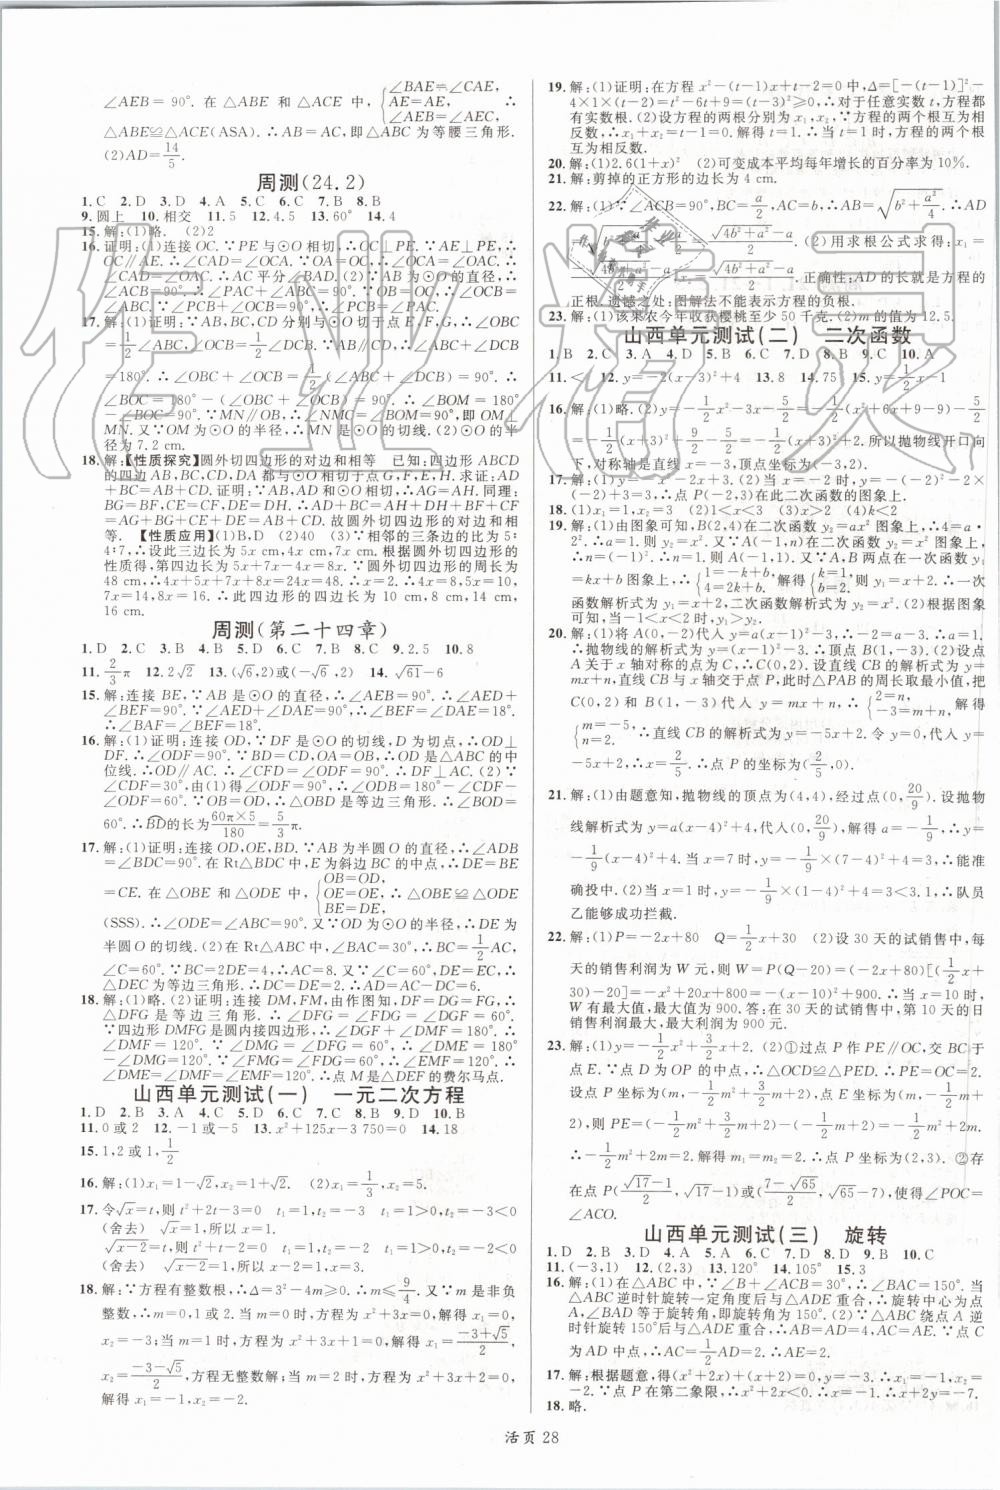 ∠AEB=90°. 在△ABE 和△ACE 中,{∠BAE=∠CAE, AE=AE, ∠AEB=∠AEC, ∴
△ABE≌△ACE(ASA). ∴AB=AC,即△ABC 为等腰三角形.
(2)AD=14/5.
周测(24.2)
1.C 2.D 3.D 4.A 5.C 6.C 7.B 8.B
9.圆上 10.相交 11.5 12.4.5 13.60° 14.4
15.解:(1)略. (2)2
16.证明:(1)连接 OC. ∵PE 与⊙O 相切,∴OC⊥PE. ∴
OC∥AE. ∴∠CAD=∠OCA. ∵OA=OC,∴∠OCA=
∠OAC. ∴∠CAD=∠OAC. ∴AC 平分∠BAD. (2)∵AB 为⊙O 的直径,∴
∠ACB=90°. ∴∠PAC+∠ABC=90°. ∵∠OBC=
∠OCB,∠PCB+∠OCB=90°,∴∠PCB=∠PAC.
17.解:(1)证明:∵AB,BC,CD 分别与⊙O 切于点 E,F,G,∴∠OBC
=1/2∠ABC,∠OCB=1/2∠DCB. ∵AB∥CD,∴∠ABC+∠DCB
=180°. ∴∠OBC+∠OCB=1/2(∠ABC+∠DCB)=90°. ∴
∠BOC=180°-(∠OBC+∠OCB)=90°. ∴∠BOM=180°
-∠BOC=90°. ∵MN∥OB,∴∠NMC=∠BOM=90°,即 OM⊥
MN. 又∵OM 为⊙O 的半径,∴MN 是⊙O 的切线. (2)⊙O 的半
径为 7.2 cm.
18.解:【性质探究】圆外切四边形的对边和相等 已知:四边形 ABCD
的四边 AB,BC,CD,DA 都与⊙O 相切于点 G,F,E,H. 求证:AD+BC=AB+CD. 证明:∵AB,AD 和⊙O 相切,∴AG=AH. 同理:
BG=BF,CE=CF,DE=DH. ∴AD+BC=AH+DH+BF+CF
=AG+BG+CE+DE=AB+CD. 故圆外切四边形的对边和相
等. 【性质应用】(1)B,D (2)40 (3)∵相邻的三条边的比为 5:
4:7,∴设此三边长为 5x cm,4x cm,7x cm. 根据圆外切四边形的
性质得,第四边长为 5x+7x-4x=8x. ∵圆外切四边形的周长为
48 cm,∴4x+5x+7x+8x=24x=48. ∴x=2. ∴4x=8,5x=10,
7x=14,8x=16. ∴此四边形的四边长为 10 cm,8 cm,14 cm,
16 cm.
周测(第二十四章)
1.D 2.C 3.A 4.C 5.D 6.B 7.D 8.C 9.2.5 10.8
11.2/3π 12.2√2 13.(√6,2)或(-√6,2) 14.√61-6
15.解:连接 BE,∵AB 是⊙O 的直径,∴∠AEB=90°. ∴∠AED+
∠BEF=90°. ∵EF⊥AF,∴∠BEF+∠ABF=90°. ∴∠BAF=∠BEF=18°.
16.解:(1)证明:连接 OD,∵DF 是⊙O 的切线,D 为切点,∴OD⊥
DF. ∴∠ODF=90°. ∵BD=CD,OA=OB,∴OD 是△ABC 的中
位线. ∴OD∥AC. ∴∠CFD=∠ODF=90°. ∴DF⊥AC. (2)∵
∠CDF=30°,由(1)得∠ODF=90°,∴∠ODB=180°-∠CDF-∠ODF=
60°. ∵OB=OD,∴△OBD 是等边三角形. ∴∠BOD=
60°. ∴BD的长为60π×5/180=5/3π.
17.解:(1)证明:连接 OD,OE,BD,∵AB 为半圆 O 的直径,∴∠ADB
=∠BDC=90°. 在 Rt△BDC 中,E 为斜边 BC 的中点,∴DE=BE
=CE. 在△OBE 和△ODE 中,{OB=OD, OE=OE, BE=DE, ∴△OBE≌△ODE
(SSS). ∴∠ODE=∠ABC=90°. 又∵OD 为⊙O 的半径,∴DE 为
半圆 O 的切线. (2)在 Rt△ABC 中,∠BAC=30°,∴BC=1/2AC,
∠C=60°. ∵BC=2DE=4,∴AC=8. 又∵∠C=60°,DE=EC,∴
△DEC 为等边三角形. ∴DC=DE=2. ∴AD=AC-DC=6.
18.解:(1)略. (2)证明:连接 DM,FM,由作图知,DF=DG=FG,∴
△DFG 是等边三角形. ∴∠DGF=∠FDG=∠DFG=60°.
∵四边形 DMFG 是圆内接四边形,∴∠DGF+∠DMF=180°.
∴∠DMF=120°. ∵∠DMG=∠DFG=60°,∴∠DME=180°
-∠DMG=120°. ∴∠EMF=360°-∠DME-∠DMF=120°.
∴∠DMF=∠DME=∠EMF. ∴点 M 是△DEF 的费尔马点.
山西单元测试(一) 一元二次方程
1.D 2.B 3.A 4.C 5.D 6.D 7.C 8.C 9.D 10.B
11.0 或 2 12.-1 或-5 13.x²+125x-3 750=0 14.18
15.1,2 或 1,1/2
16.解:(1)x₁=1-√2,x₂=1+√2. (2)x₁=1/3,x₂=5.
17.令√x=t,则 t²+2t-3=0 t₁=1,t₂=-3 t₁=1>0,t₂=-3<0
(舍去) √x=1,所以 x=1.
√(x-2)=t,则 t²+t-2=0 t₁=1,t₂=-2 t₁=1>0,t₂=-2<0
(舍去) √(x-2)=1,所以 x=3.
18.解:∵方程有整数根,∴Δ=3²-4m≥0. ∴m≤9/4. ∵m 是非负
整数,∴m=0,1 或 2. 当 m=0 时,方程为 x²+3x=0,解得 x₁=0,
x₂=-3;当 m=1 时,方程为 x²+3x+1=0,解得 x₁=(-3+√5)/2,
x₂=(-3-√5)/2,方程无整数解;当 m=2 时,方程为 x²+3x+2=0,
解得 x₁=-1,x₂=-2.
19.解:(1)证明:在方程 x²-(t-1)x+t-2=0 中,Δ=[-(t-1)]²-
4×1×(t-2)=t²-6t+9=(t-3)²≥0,∴对于任意实数 t,方程都
有实数根. (2)设方程的两根分别为 x₁,x₂,∵方程的两个根互为相
反数,∴x₁+x₂=t-1=0. 解得 t=1. ∴当 t=1 时,方程的两个根
互为相反数.
20.解:(1)2.6(1+x)² (2)可变成本平均每年增长的百分率为 10%.
21.解:剪掉的正方形的边长为 4 cm.
22.解:(1)∵∠ACB=90°,BC=a/2,AC=b,∴AB=√(b²+a²/4). ∴AD
=√(b²+a²/4)-a/2=(√(4b²+a²)-a)/2. (2)用求根公式求得:x₁=
(-√(4b²+a²)-a)/2,x₂=(√(4b²+a²)-a)/2. 正确性:AD 的长就是方程的
正根. 遗憾之处:图解法不能表示方程的负根.
23.解:(1)该果农今年收获樱桃至少 50 千克. (2)m 的值为 12.5.
山西单元测试(二) 二次函数
1.B 2.C 3.A 4.D 5.B 6.C 7.D 8.B 9.C 10.A
11.< 12.y=-2(x-3)²+4 13.8 14.75 15.y=1/2x-1
16.解:(1)略. (2)y=-1/2x²-3x-5/2=-1/2(x²+6x+9-9)-5/2
=-1/2(x+3)²+9/2-5/2=-1/2(x+3)²+2. 所以抛物线开口向
下,对称轴是直线 x=-3,顶点坐标为(-3,2).
17.解:(1)y=-x²-2x+3. (2)当 x=-2 时,y=-(-2)²-2×
(-2)+3=3,∴点 P(-2,3)在此二次函数的图象上.
18.(1)x₁=1,x₂=3 (2)1<x<3 (3)x>2 (4)k<2
19.解:(1)由图象可知,B(2,4)在二次函数 y₂=ax² 图象上,∴4=a·
2². ∴a=1. 则二次函数 y₂=x². 又∵A(-1,n)在二次函数 y₂=x² 图象上,
∴n=(-1)². ∴n=1. 则 A(-1,1). 又∵A,B 两点在一次函数 y₁
=kx+b 图象上,∴{1=-k+b, 4=2k+b, 解得{k=1, b=2. 则 y₁=x+2. ∴一次
函数解析式为 y₁=x+2,二次函数解析式为 y₂=x². (2)根据图象可
知,当-1<x<2 时,y₁>y₂.
20.解:(1)将 A(0,-2)代入 y=a(x-1)²-3,∴-2=a-3. ∴a=1.
∴抛物线的解析式为 y=(x-1)²-3. ∴顶点 B(1,-3). (2)设点
A 关于 x 轴对称的点为 C,∴C(0,2). 设直线 CB 的解析式为 y=
mx+n,直线 CB 与 x 轴交于点 P,此时△PAB 的周长取最小值,把
C(0,2)和 B(1,-3)代入 y=mx+n,∴{2=n, -3=m+n, 解得
{m=-5, n=2. ∴直线 CB 的解析式为 y=-5x+2. 令 y=0,代入 y=
-5x+2,∴x=2/5. ∴点 P 的坐标为(2/5,0).
21.解:(1)由题意知,抛物线的顶点为(4,4),经过点(0,20/9). 设抛物
线解析式为 y=a(x-4)²+4,代入(0,20/9),解得 a=-1/9. ∴y=
-1/9(x-4)²+4. 当 x=7 时,y=-1/9×(7-4)²+4=3,∴能准
确投中. (2)当 x=1 时,y=-1/9×(1-4)²+4=3<3.1,∴队员
乙能够成功拦截.
22.解:(1)P=-2x+80 Q=1/2x+30 (2)设 30 天的试销售中,每
天的销售利润为 W 元,则 W=P(Q-20)=(-2x+80)[(1/2x+
30)-20]=-x²+20x+800=-(x-10)²+900. ∴当 x=10 时,
W 有最大值,W 最大值为 900. 答:在 30 天的试销售中,第 10 天的日
销售利润最大,最大利润为 900 元.
23.解:(1)y=-1/2x²+3/2x+2. (2)①过点 P 作 PE∥OC,交 BC 于
点 E. ∵点 D 为 OP 的中点,∴△OCD≌△PED. ∴PE=OC=
2. 设点 P 坐标为(m,-1/2m²+3/2m+2),点 E 坐标为(m,-1/2m+
2),则 PE=(-1/2m²+3/2m+2)-(-1/2m+2)=-1/2m²+2m. ∴-
1/2m²+2m=2. 解得 m₁=m₂=2. ∴点 P 坐标为(2,3). ②存
在点 P((√17-1)/2,√17-1)或((7-√65)/2,√65-7),使得∠POC=
∠ACO.
山西单元测试(三) 旋转
1.D 2.B 3.D 4.B 5.C 6.D 7.B 8.C 9.B 10.C
11.(-3,1) 12.(2,3) 13.120° 14.105° 15.3
16.解:(1)在△ABC 中,∵∠B+∠ACB=30°,∴∠BAC=150°. 当
△ABC 逆时针旋转一定角度后与△ADE 重合,∴旋转中心为点
A,∠BAD 等于旋转角,即旋转角为 150°. (2)∵△ABC 绕点 A 逆
时针旋转 150°后与△ADE 重合,∴AB=AD=4,AC=AE. ∵点 C
为 AD 中点,∴AC=1/2AD=2. ∴AE=2.
17.解:根据题意,得(x²+2x)+(x+2)=0,y=-3. ∴x₁=-1,x₂
=-2. ∵点 P 在第二象限,∴x=-1. ∴x+2y=-7.
18.略.
活页 28
作业精灵